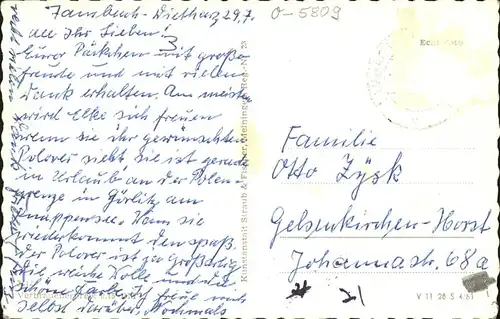 Tambach-Dietharz 29.7.
all Ihr Lieben!
Eurer Päckchen mit großer
freute und mit vielen
Dank erhalten. Am meisten
wird Elke sich freuen
wenn sie ihr gewünschten
Polover sieht sie ist gerade
in Urlaub an der Polen-
grenze in Görlitz am
Knappersee. Wenn sie
wiederkommt den spaß.
Der Polover ist ja großartig
die weiche Wolle und die
schöne Farbe. Ich freue mich
selbst darüber. Nochmals
0-5809
Echt Foto
Kunstanstalt Straub & Fischer, Meiningen
Familie
Otto Zysk
Gelsenkirchen-Horst
Johannastr. 68a
21
V 11 28 S 4/61